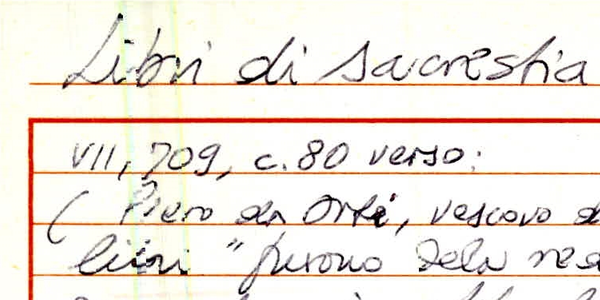 Libri di Sacrestia
VII, 709, c. 80 verso:
( Piero da Orte, vescovo d
libri "furono dela